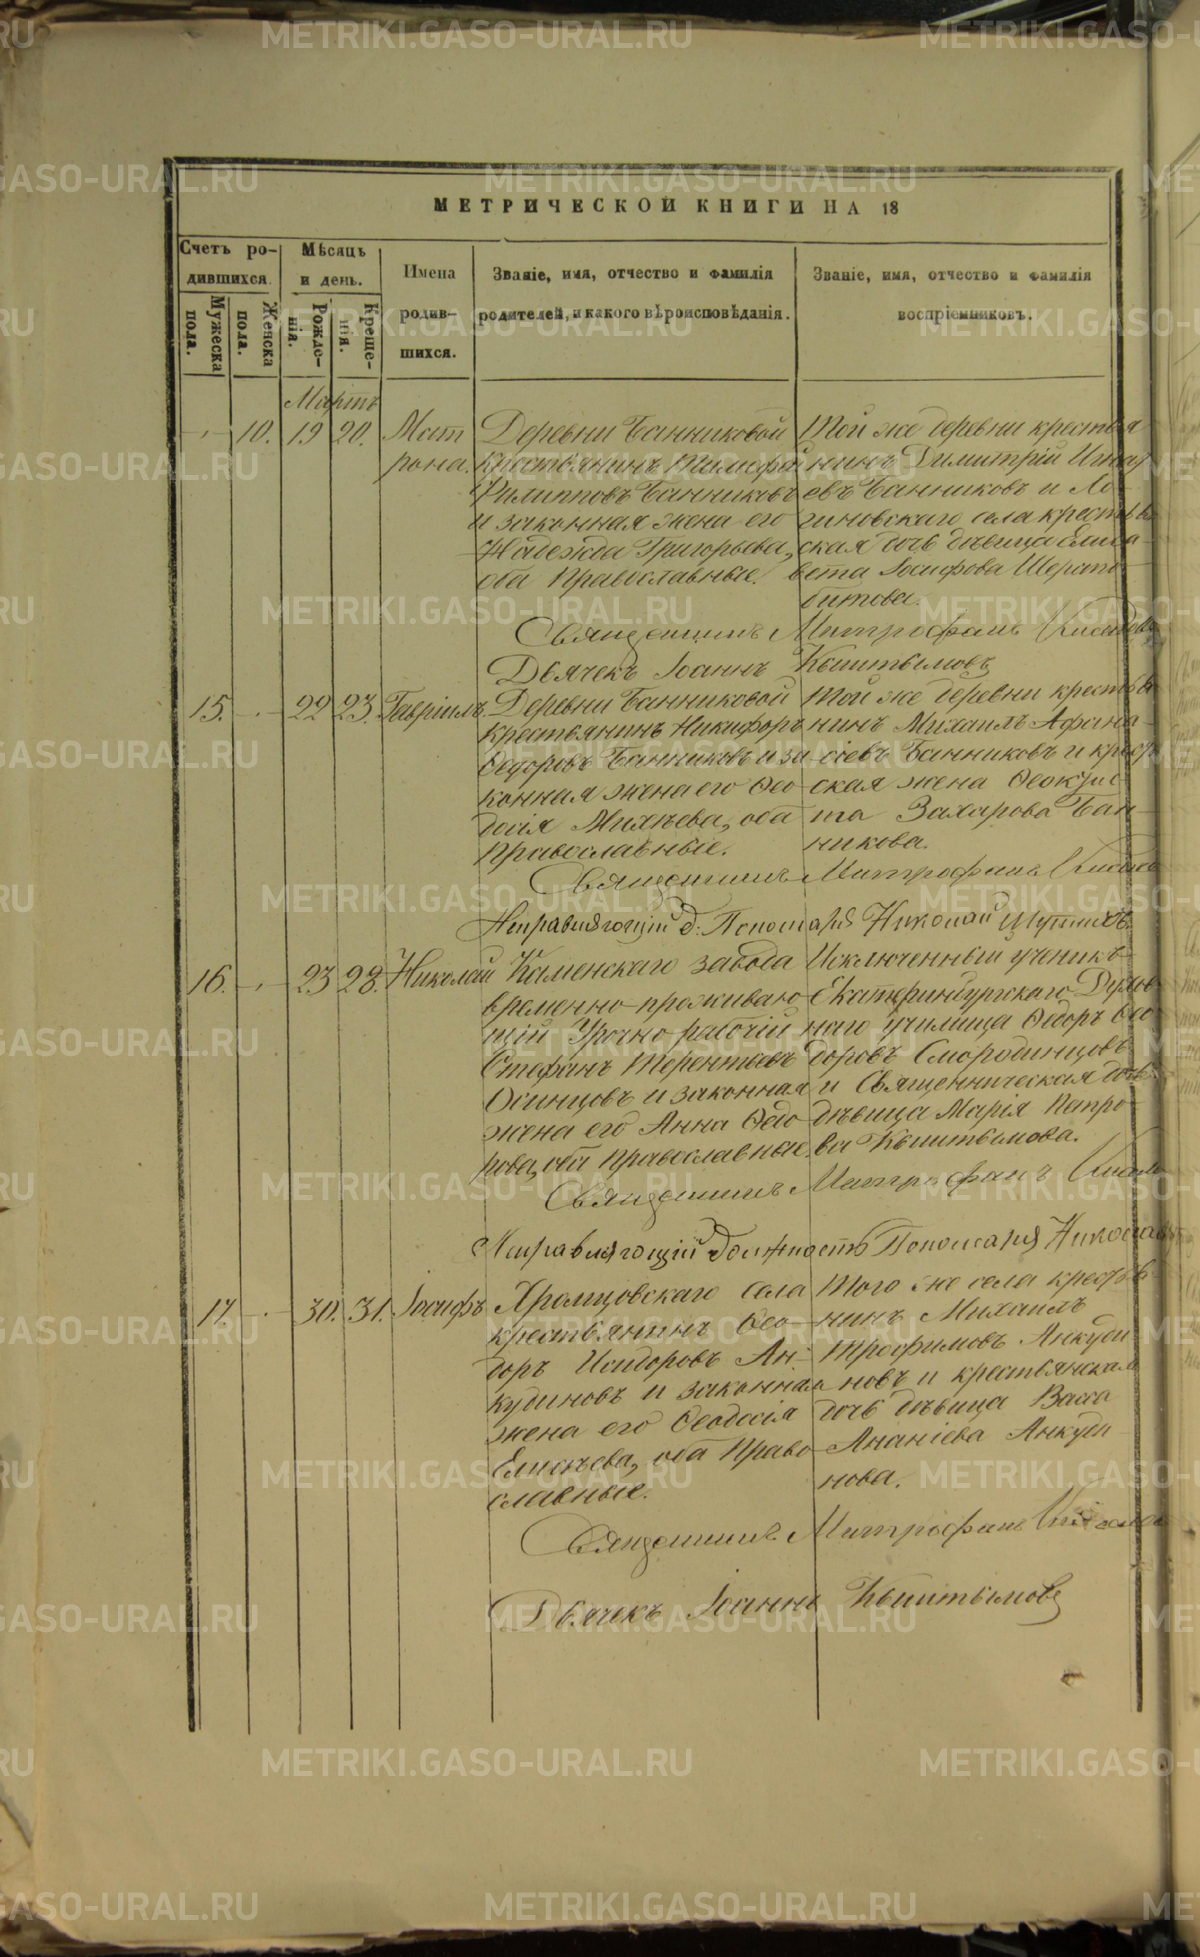 МЕТРИЧЕСКОЙ КНИГИ НА 18
Счетъ ро-
дившихся.
Мужеска
пола.
Женска
пола.
Мѣсяцъ
и день.
Рожде-
нія.
Креще-
нія.
Имена
родив-
шихся.
Званіе, имя, отчество и фамилія
родителей, и какого вѣроисповѣданія.
Званіе, имя, отчество и фамилія
воспріемниковъ.
Мартъ
10. 19 20. Мат
рона.
Деревни Банниковой
крестьянинъ
Филипповъ Банниковъ
и законная жена его
Надежда Григорьева,
оба Православные.
Той же деревни крестья
нинъ Димитрій
евъ Банниковъ и Ло-
гиновскаго села крестьян
ская дочь дѣвица Елиса-
вета Іосифова Шерсто-
битова.
Священникъ Митрофанъ
Дьячекъ Іоаннъ Кыштымовъ
15. 22 23. Гавріилъ.
Деревни Банниковой
крестьянинъ Никифоръ
Ѳедоровъ Банниковъ и за
конная жена его Ѳео
досія Михѣева, оба
Православные.
Той же деревни крестья
нинъ Михаилъ Афана-
сіевъ Банниковъ и крест
ская жена Ѳеоктис
та Захарова Бан-
никова.
Священникъ Митрофанъ
Исправляющій д: Пономаря Николай
16. 23 28. Николай
Каменскаго завода
временно-проживаю
щій Урочно-рабочій
Стефанъ Терентьевъ
Осинцовъ и законная
жена его Анна Ѳедо
рова, оба Православные.
Исключенный ученикъ
Екатеринбургскаго Духов
наго училища Ѳедоръ Ѳео
доровъ Смородинцовъ
и Священническая дочь
дѣвица Марія Петро-
ва Кыштымова.
Священникъ Митрофанъ
Исправляющій должность Пономаря Николай
17. 30. 31. Іосифъ
Хромцовскаго села
крестьянинъ Ѳео-
доръ Исидоровъ Ан-
кудиновъ и законная
жена его Ѳеодосія
Елисѣева, оба Право
славные.
Того же села крестья
нинъ Михаилъ
Трофимовъ Анкуди
новъ и крестьянская
дочь дѣвица Васса
Ананіева Анкуди
нова.
Священникъ Митрофанъ
Дьячекъ Іоаннъ Кыштымовъ
METRIKI.GASO-URAL.RU